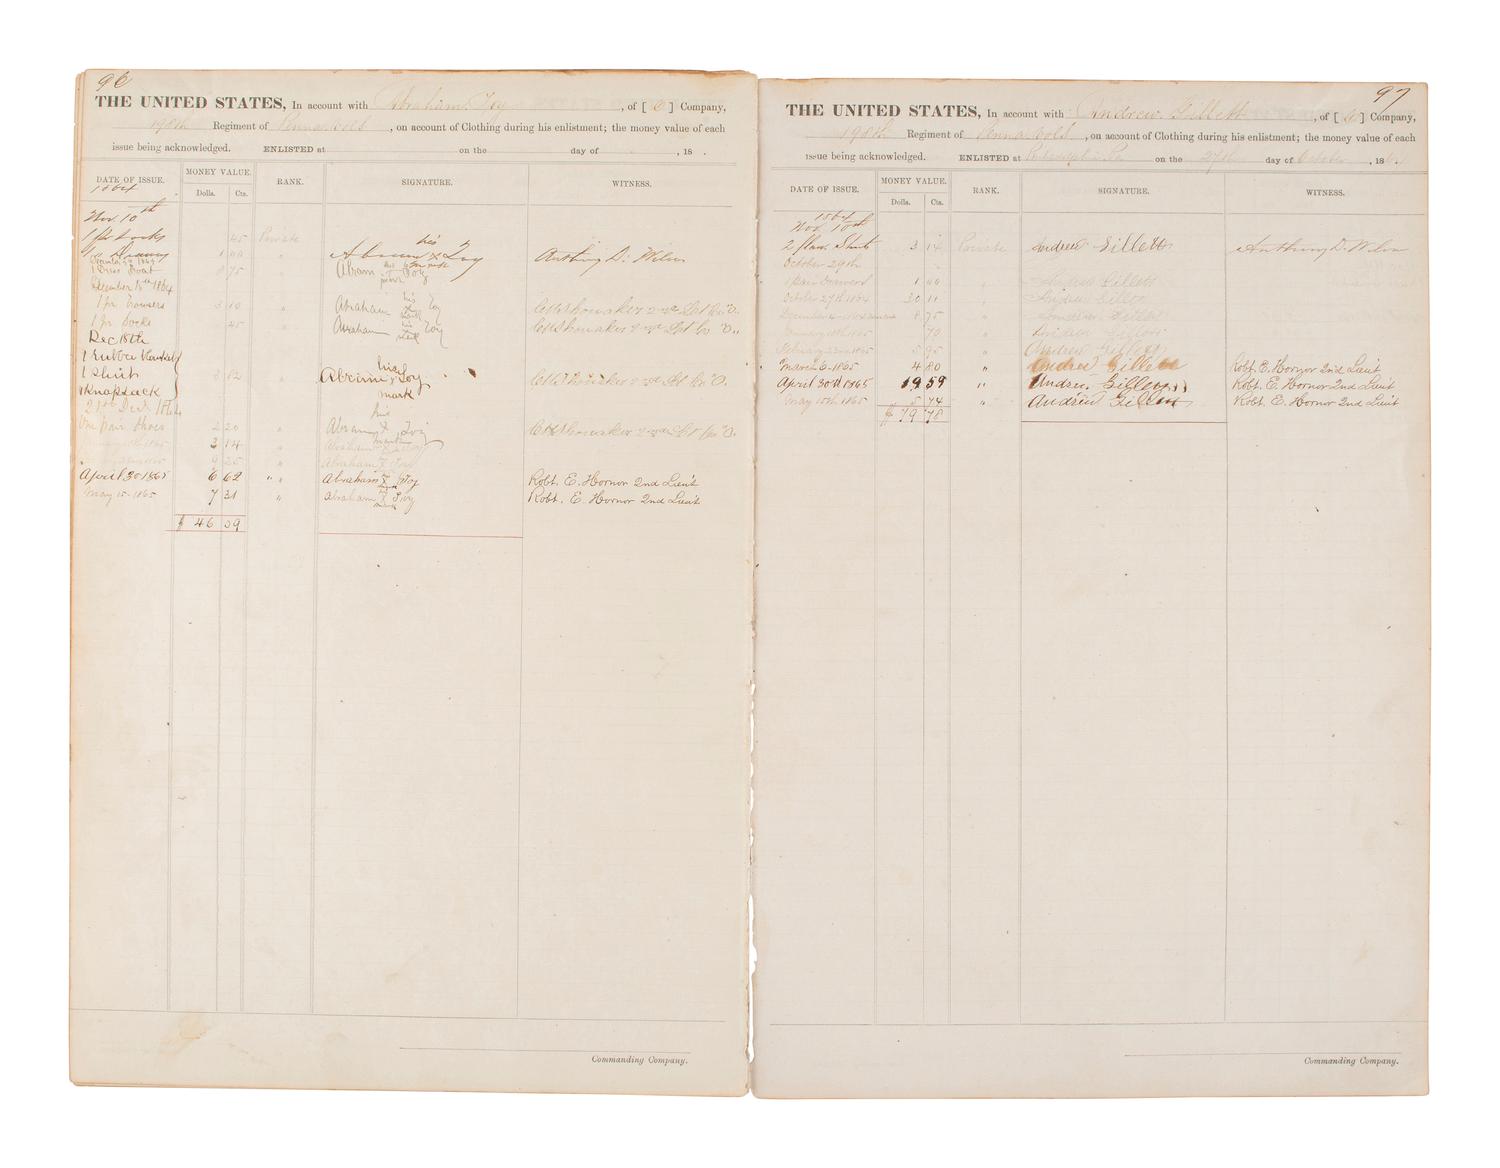 96
THE UNITED STATES, In account with Abraham Toy, of [ ] Company,
198th Regiment of Penna Vols, on account of Clothing during his enlistment; the money value of each
issue being acknowledged. ENLISTED at on the day of , 18 .
DATE OF ISSUE. MONEY VALUE. RANK. SIGNATURE. WITNESS.
Dolls. Cts.
1864
Nov. 10th
1 pr Socks 45 Private his
Abram X Toy Anthony D. Wilson
mark
1 Dress Coat 8 75 Abram Toy
December 15th 1864
1 pr Trousers 3 10 Abraham his Toy C W Showaker 2nd Lt Co "O"
1 pr Socks 45 " Abraham his Toy C W Showaker 2nd Lt Co "O"
Dec 18th
1 Rubber Blanket
1 Shirt Abram his X Toy C W Showaker 2nd Lt Co O.
Knapsack mark
21st Dec 1864 his
One pair Shoes 2 20 " Abraham X Toy C W Showaker 2nd Lt Co O.
3 14 " Abraham
Abraham X Toy
April 30 1865 6 62 " " Abraham X Toy Robt. E. Hornor 2nd Lieut
May 15-1865 7 31 " Abraham X Toy Robt. E. Hornor 2nd Lieut
$ 46 09
Commanding Company.
97
THE UNITED STATES, In account with Andrew Gillett, of [ ] Company,
198th Regiment of Penna Vols, on account of Clothing during his enlistment; the money value of each
issue being acknowledged. ENLISTED at Philadelphia Pa on the 27th day of October, 186 .
DATE OF ISSUE. MONEY VALUE. RANK. SIGNATURE. WITNESS.
Dolls. Cts.
1864
Nov 10th
2 flan. Shirts 3 14 Private Andrew Gillett Anthony D. Wilson
October 29th
1 Pair Drawers " Andrew Gillett
October 27th 1864 30 11 " Andrew Gillett
8 75 " Andrew Gillett
70 "
February 22nd 1865 5 95 " Andrew Gillett
March 6-1865 4 80 " Andrew Gillett Robt. E. Hornor 2nd Lieut
April 30th 1865 19 59 " Andrew Gillett Robt. E. Hornor 2nd Lieut
May 15th 1865 5 74 " Andrew Gillett Robt. E. Hornor 2nd Lieut
$ 79 78
Commanding Company.